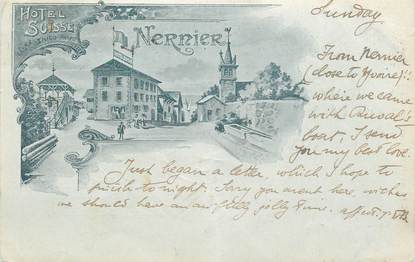 HOTEL
SUISSE
Nernier
Sunday
From Nernier
(close to Yvoire):
where we came
with
boat, I send
you my best love.
Just began a letter, which I hope to
finish to night. Sorry you arent here,
we should have an awfully jolly time.